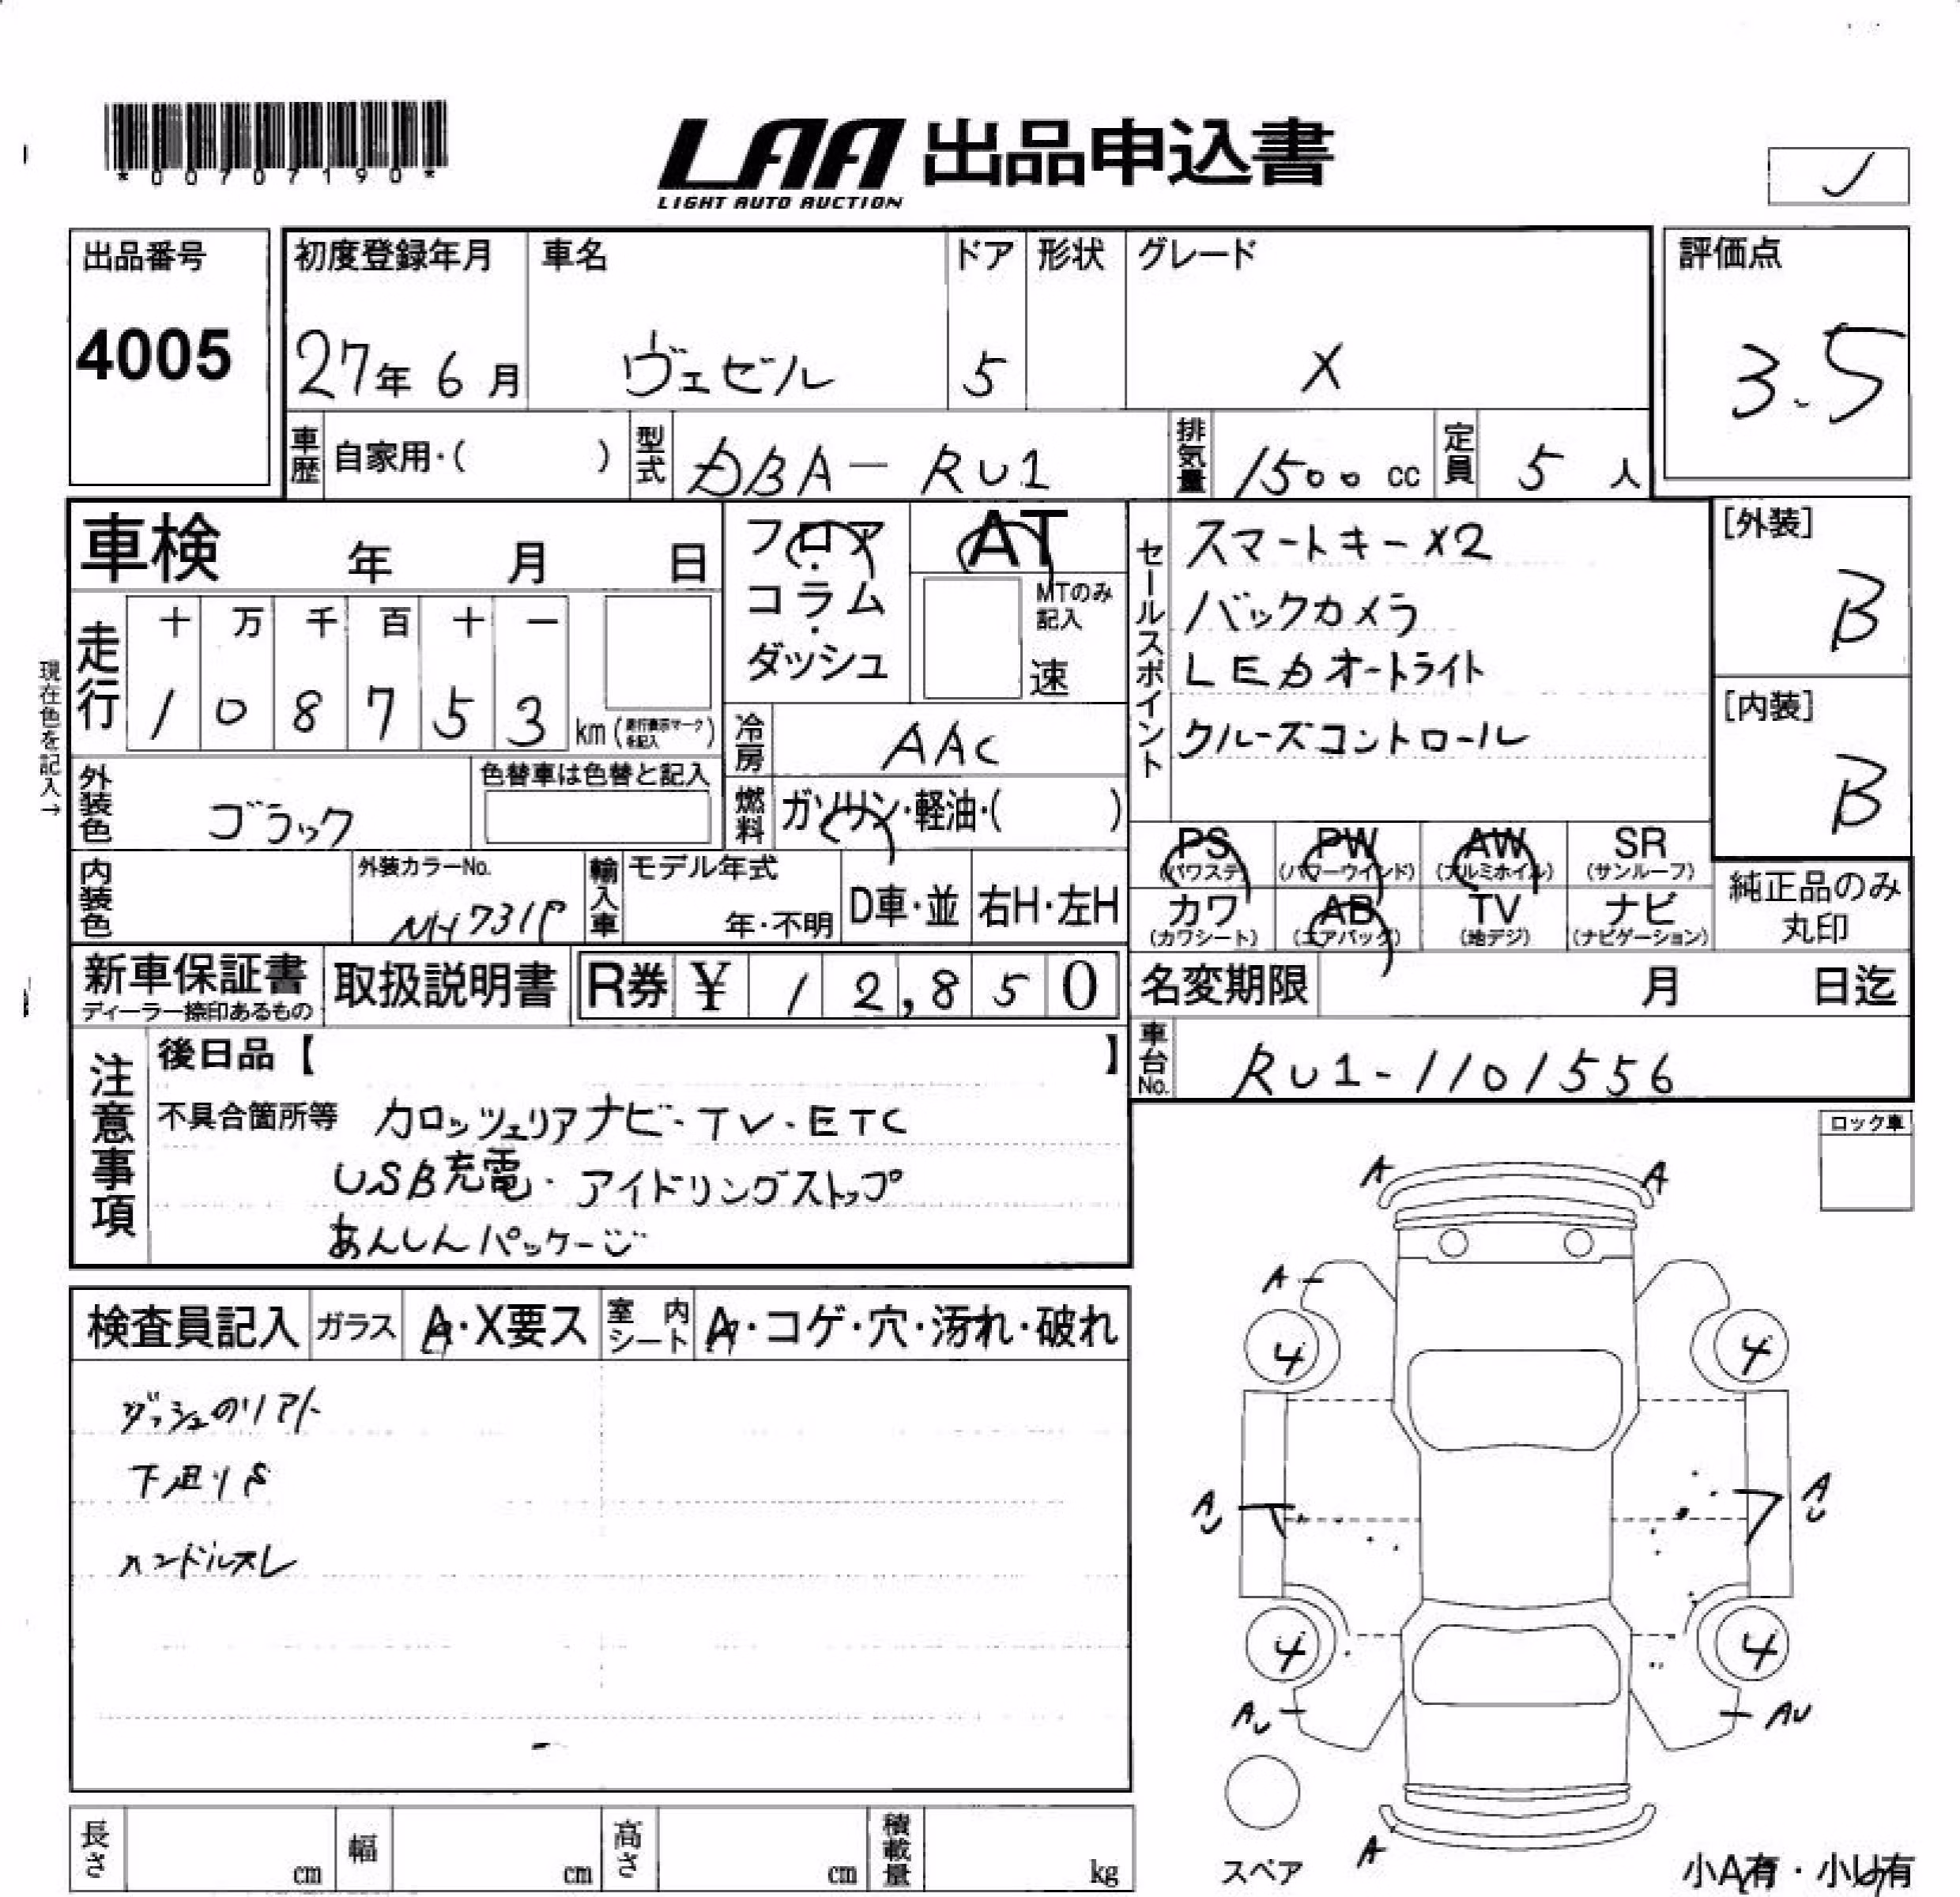 *00707190*
LAA 出品申込書
LIGHT AUTO AUCTION
J
出品番号
4005
初度登録年月
27年 6月
車名
ヴェゼル
ドア
5
形状
グレード
X
評価点
3.5
車歴 自家用・( )
型式 DBA-RU1
排気量 1500 cc
定員 5 人
車検 年 月 日
フロア・コラム・ダッシュ
AT
MTのみ記入
速
セールスポイント
スマートキー×2
バックカメラ
LEDオートライト
クルーズコントロール
[外装]
B
[内装]
B
現在色を記入→
走行
十 万 千 百 十 一
1 0 8 7 5 3 km
冷房 AAC
外装色 ブラック
色替車は色替と記入
燃料 ガソリン・軽油・( )
PS (パワステ)
PW (パワーウインド)
AW (アルミホイル)
SR (サンルーフ)
カワ (カワシート)
AB (エアバッグ)
TV (地デジ)
ナビ (ナビゲーション)
純正品のみ
丸印
内装色
外装カラーNo.
NH731P
輸入車
モデル年式
年・不明
D車・並
右H・左H
新車保証書
ディーラー捺印あるもの
取扱説明書
R券 ¥ 1 2,8 5 0
名変期限 月 日迄
車台No. RU1-1101556
注意事項
後日品【 】
不具合箇所等 カロッツェリアナビ・TV・ETC
USB充電・アイドリングストップ
あんしんパッケージ
ロック車
検査員記入
ガラス A・X要ス
室内シート A・コゲ・穴・汚れ・破れ
下回りS
ハンドルスレ
A A
A
4 4
AU AU
4 4
AU AU
A
スペア
小A有・小U有
長さ cm
幅 cm
高さ cm
積載量 kg